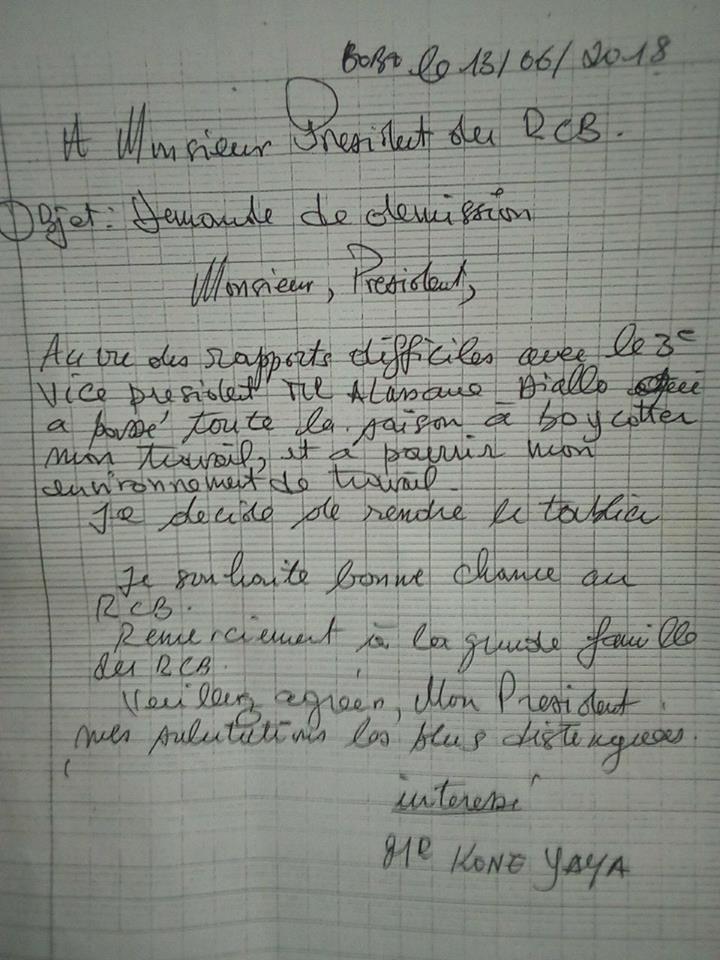 BOBO le 13/06/2018
A Monsieur President du RCB.
Objet: Demande de demission
Monsieur, President,
Au vu des rapports difficiles avec le 3e
Vice president Mr Alassane Diallo qui
a passé toute la saison à boycotter
mon travail, et a pourrir mon
environnement de travail.
Je decide de rendre le tablier
Je souhaite bonne chance au
RCB.
Remerciement à la grande famille
du RCB.
Veuillez agréer, Mon President
mes salutations les plus distinguées.
interessé
Mr KONE YAYA